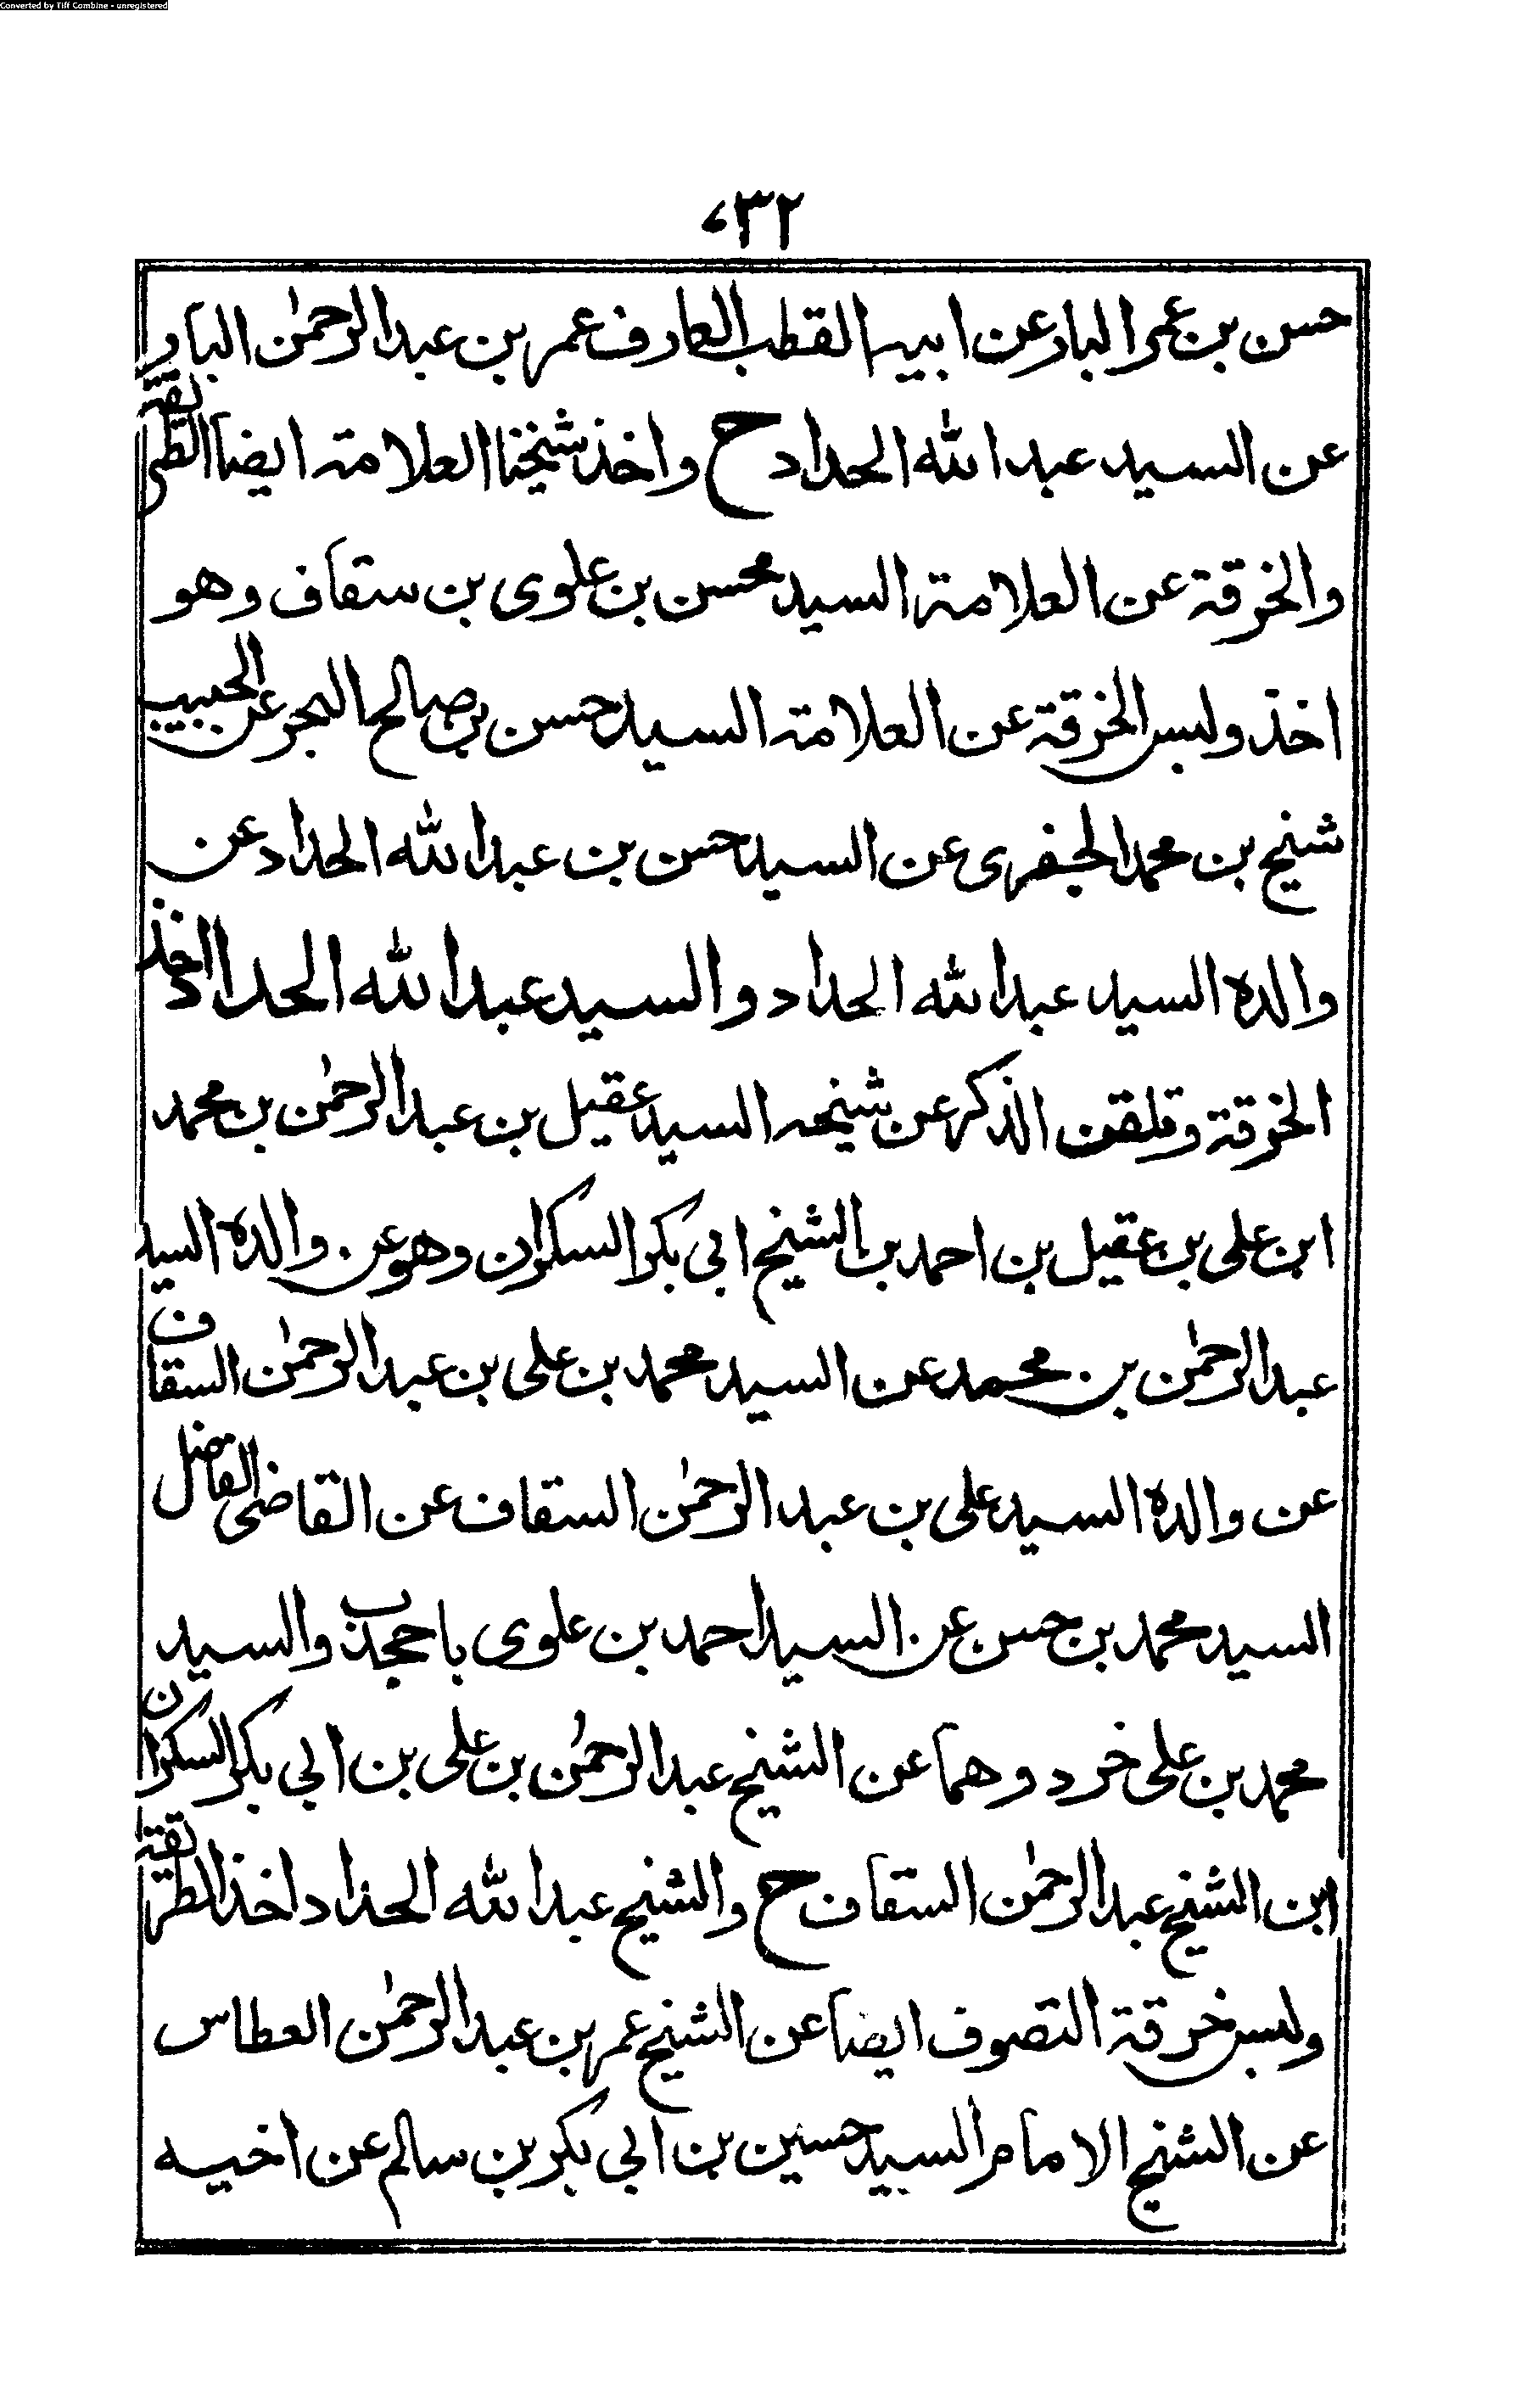 Converted by Tiff Combine - unregistered
٣٢
حسن بن عمر البار عن ابيه القطب العارف عمر بن عبد الرحمٰن البار
عن السيد عبد الله الحداد ح واخذ شيخنا العلامة ايضا الطريقة
والخرقة عن العلامة السيد محسن بن علوى بن سقاف وهو
اخذ ولبس الخرقة عن العلامة السيد حسن بن صالح البحر عن الحبيب
شيخ بن محمد الجفرى عن السيد حسن بن عبد الله الحداد عن
والده السيد عبد الله الحداد والسيد عبد الله الحداد اخذ
الخرقة وتلقن الذكر عن شيخه السيد عقيل بن عبد الرحمٰن بن محمد
ابن على بن عقيل بن احمد بن الشيخ ابى بكر السكران وهو عن والده السيد
عبد الرحمٰن بن محمد عن السيد محمد بن على بن عبد الرحمٰن السقاف
عن والده السيد على بن عبد الرحمٰن السقاف عن القاضى الفاضل
السيد محمد بن حسن عن السيد احمد بن علوى باجحدب والسيد
محمد بن على خرد وهما عن الشيخ عبد الرحمٰن بن على بن ابى بكر السكران
ابن الشيخ عبد الرحمٰن السقاف ح والشيخ عبد الله الحداد اخذ الطريقة
ولبس خرقة التصوف ايضا عن الشيخ عمر بن عبد الرحمٰن العطاس
عن الشيخ الامام السيد حسين بن ابى بكر بن سالم عن اخيه